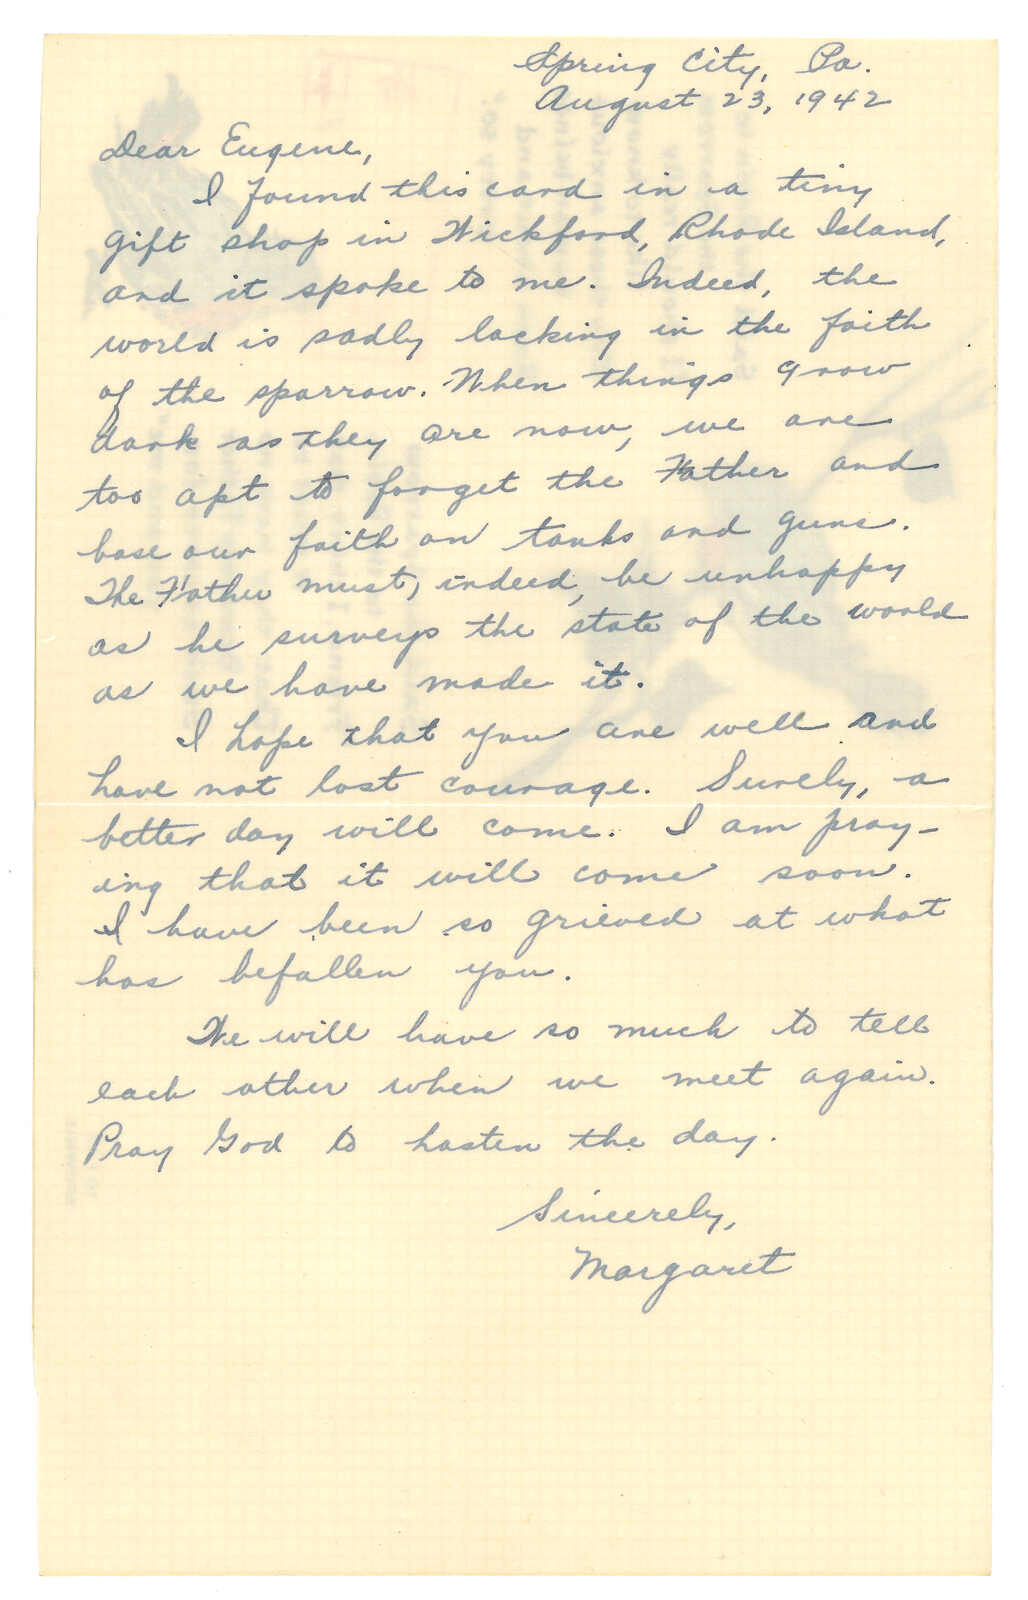 Spring City, Pa.
August 23, 1942
Dear Eugene,
I found this card in a tiny
gift shop in Wickford, Rhode Island,
and it spoke to me. Indeed, the
world is sadly lacking in the faith
of the sparrow. When things grow
dark as they are now, we are
too apt to forget the Father and
base our faith on tanks and guns.
The Father must, indeed, be unhappy
as he surveys the state of the world
as we have made it.
I hope that you are well and
have not lost courage. Surely, a
better day will come. I am pray-
ing that it will come soon.
I have been so grieved at what
has befallen you.
We will have so much to tell
each other when we meet again.
Pray God to hasten the day.
Sincerely,
Margaret